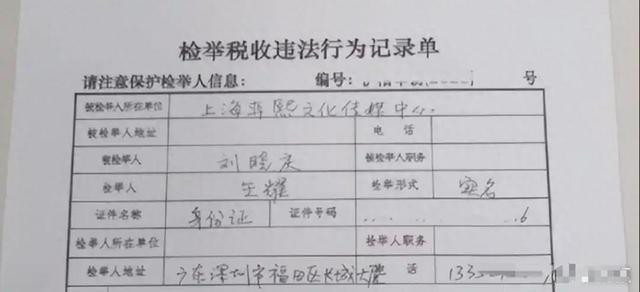 检举税收违法行为记录单
请注意保护检举人信息： 编号： 号
被检举人所在单位 上海 熙文化传媒中心
被检举人地址 电话
被检举人 刘晓庆 被检举人职务
检举人 王耀 检举形式 实名
证件名称 身份证 证件号码 6
检举人所在单位 检举人职务
检举人地址 广东深圳市福田区长城大厦 话 133